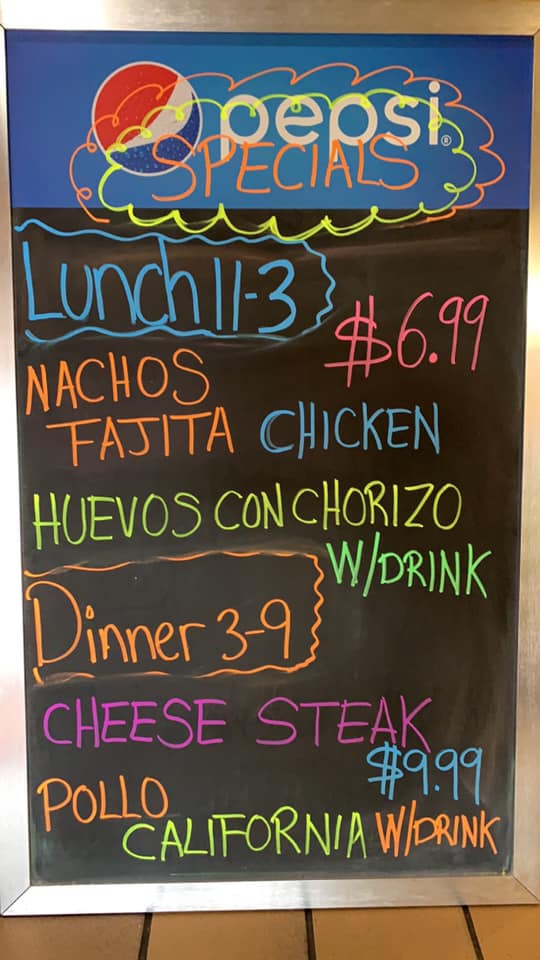 pepsi®
SPECIALS
Lunch 11-3
$6.99
NACHOS
FAJITA CHICKEN
HUEVOS CON CHORIZO
W/DRINK
Dinner 3-9
CHEESE STEAK
$9.99
POLLO
CALIFORNIA W/DRINK